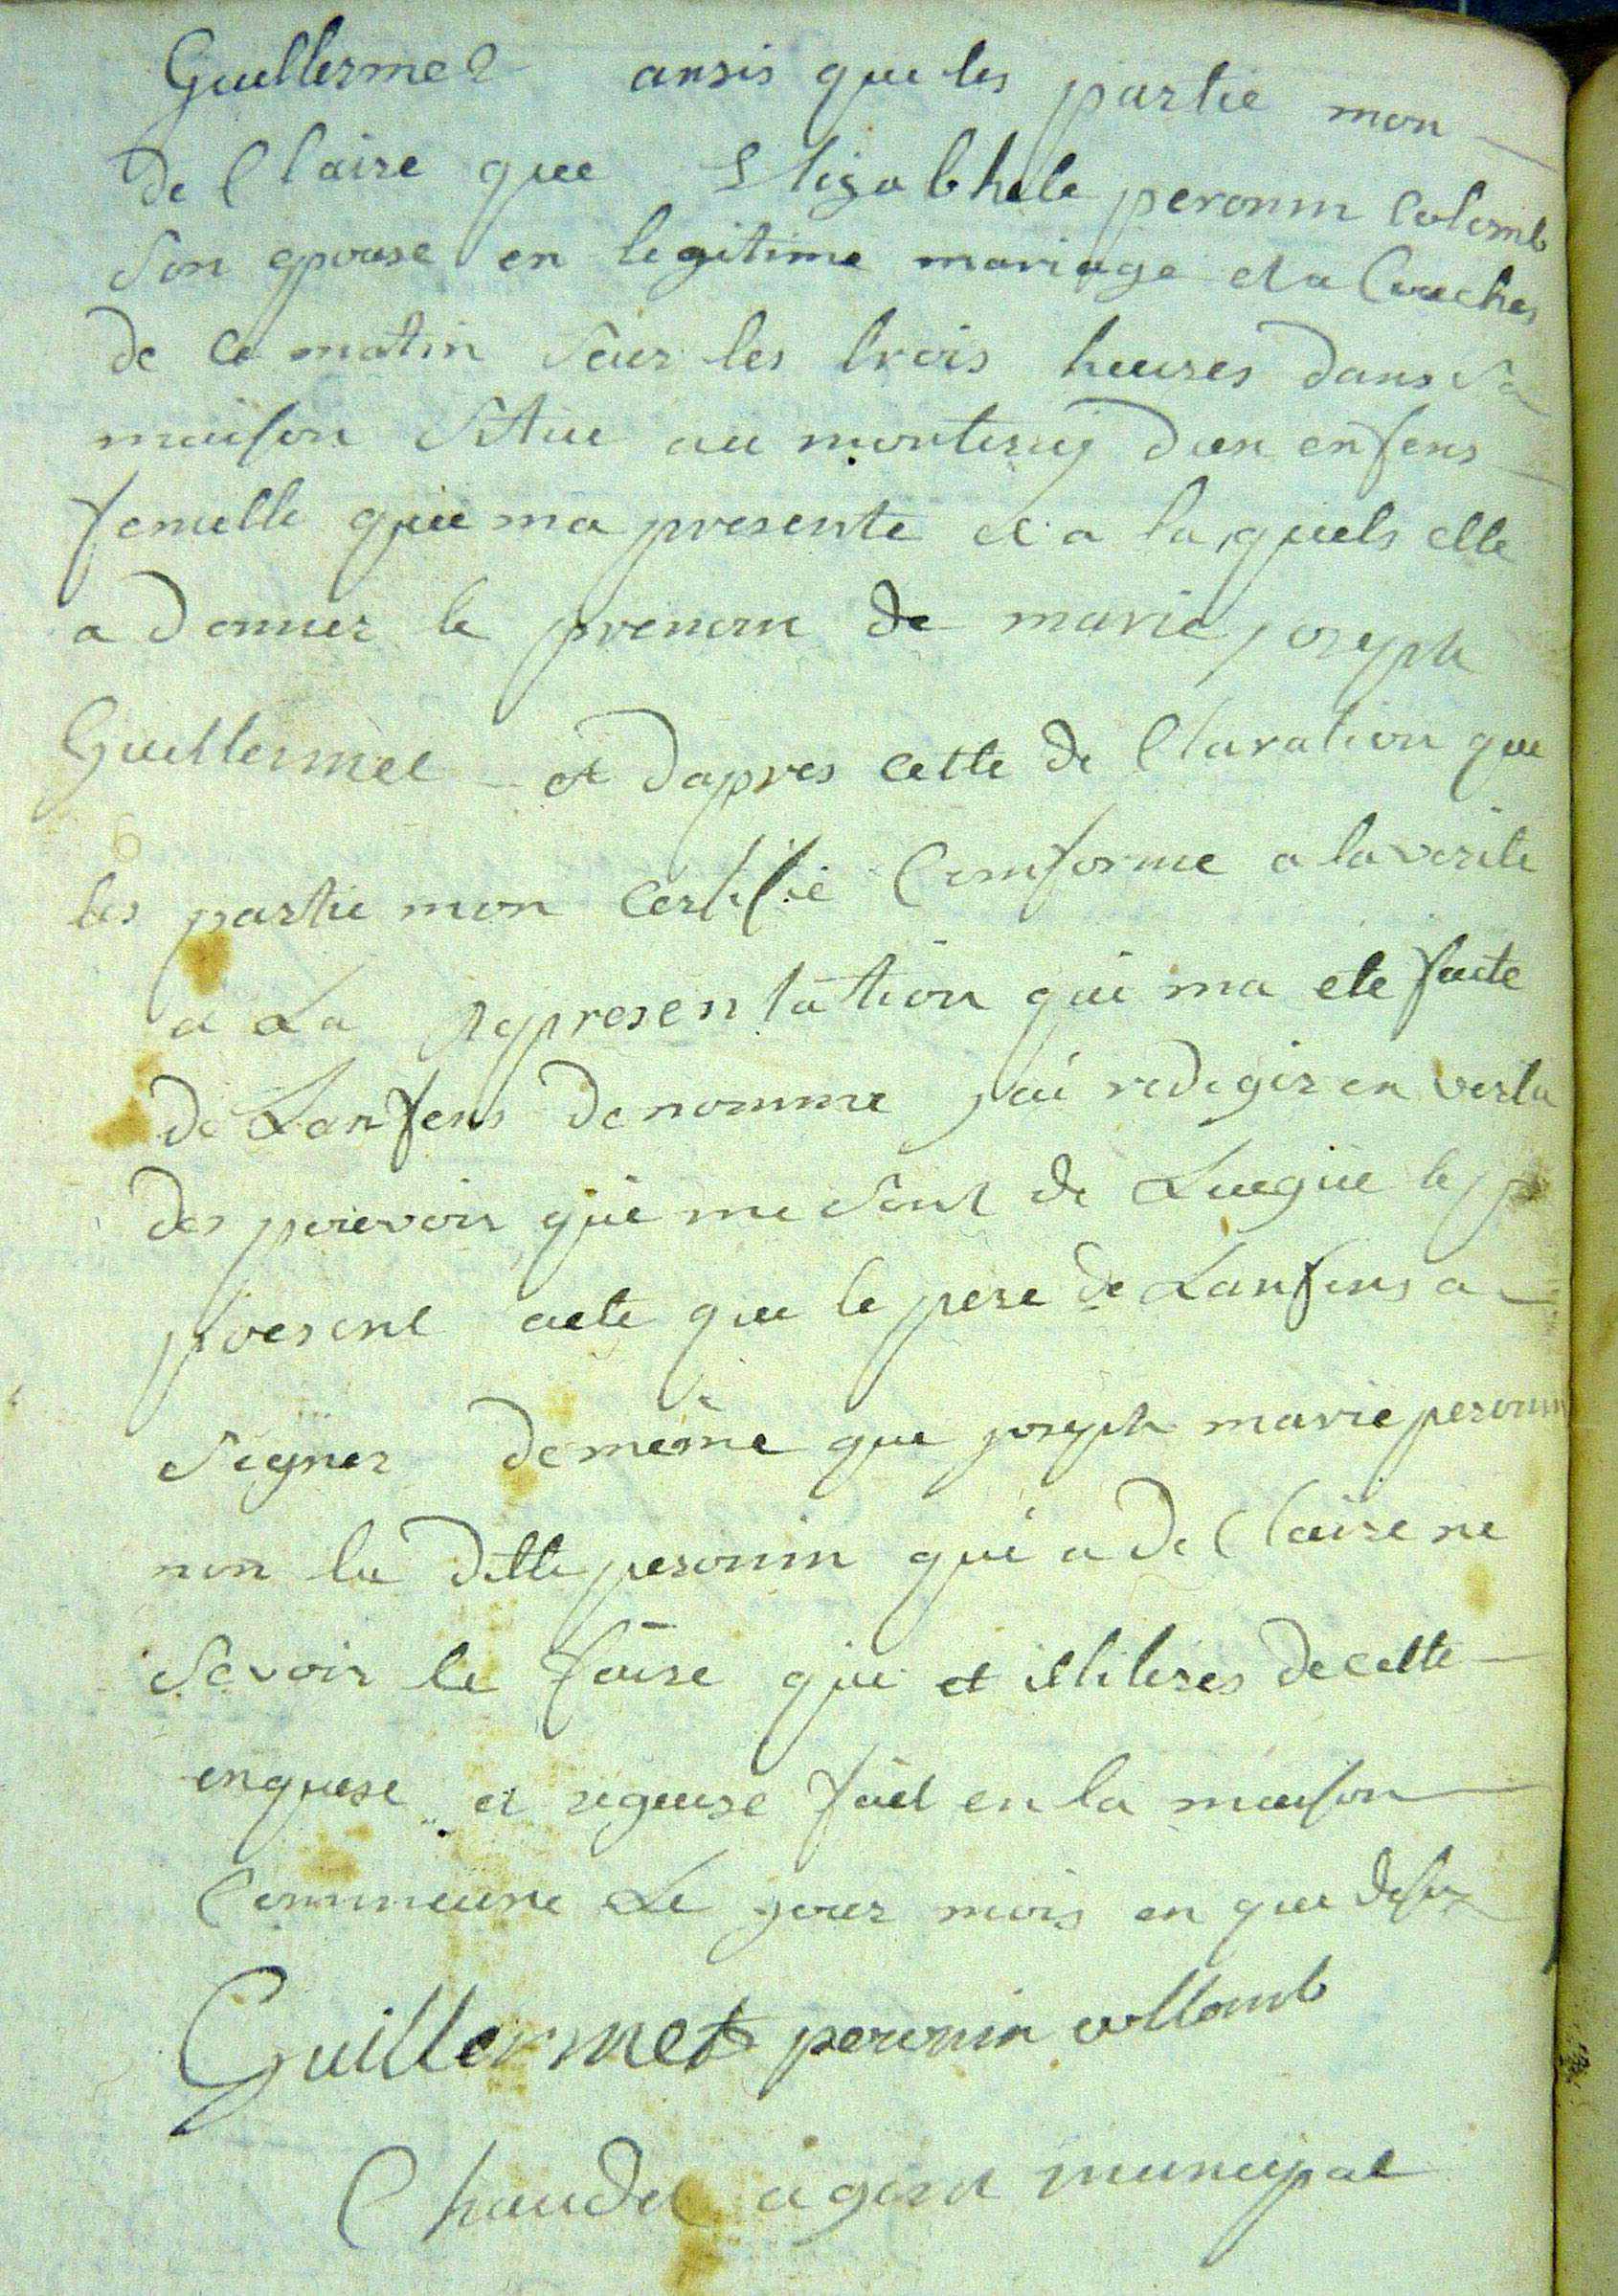 Guillermet ansis que les partie mon
de Claire que Elizabhete peronin Colomb
son epouse en legitime mariage et a Couches
de ce matin seur les trois heures dans sa
maison situe au d'un enfens
femelle que ma presente et a la quels elle
a donner le prenom de marie joseph
Guillermet et dapres cette de Claration que
les partie mon certifie Comforme a la verite
a La representation qui ma ete faite
de Lanfens denomme jai redigez en vertu
des pouvoir qui me sont de Luegue le p
present acte que le pere de Lanfens a
signer de meme que joseph marie peronin
non la ditte peronin qui a de Claire ne
sevoir le faire que et illiteres de cette
enquese et fait en la maison
Commeune Le jour mois en que desu
Guillermet peronin collomb
Chaudet agent municipal